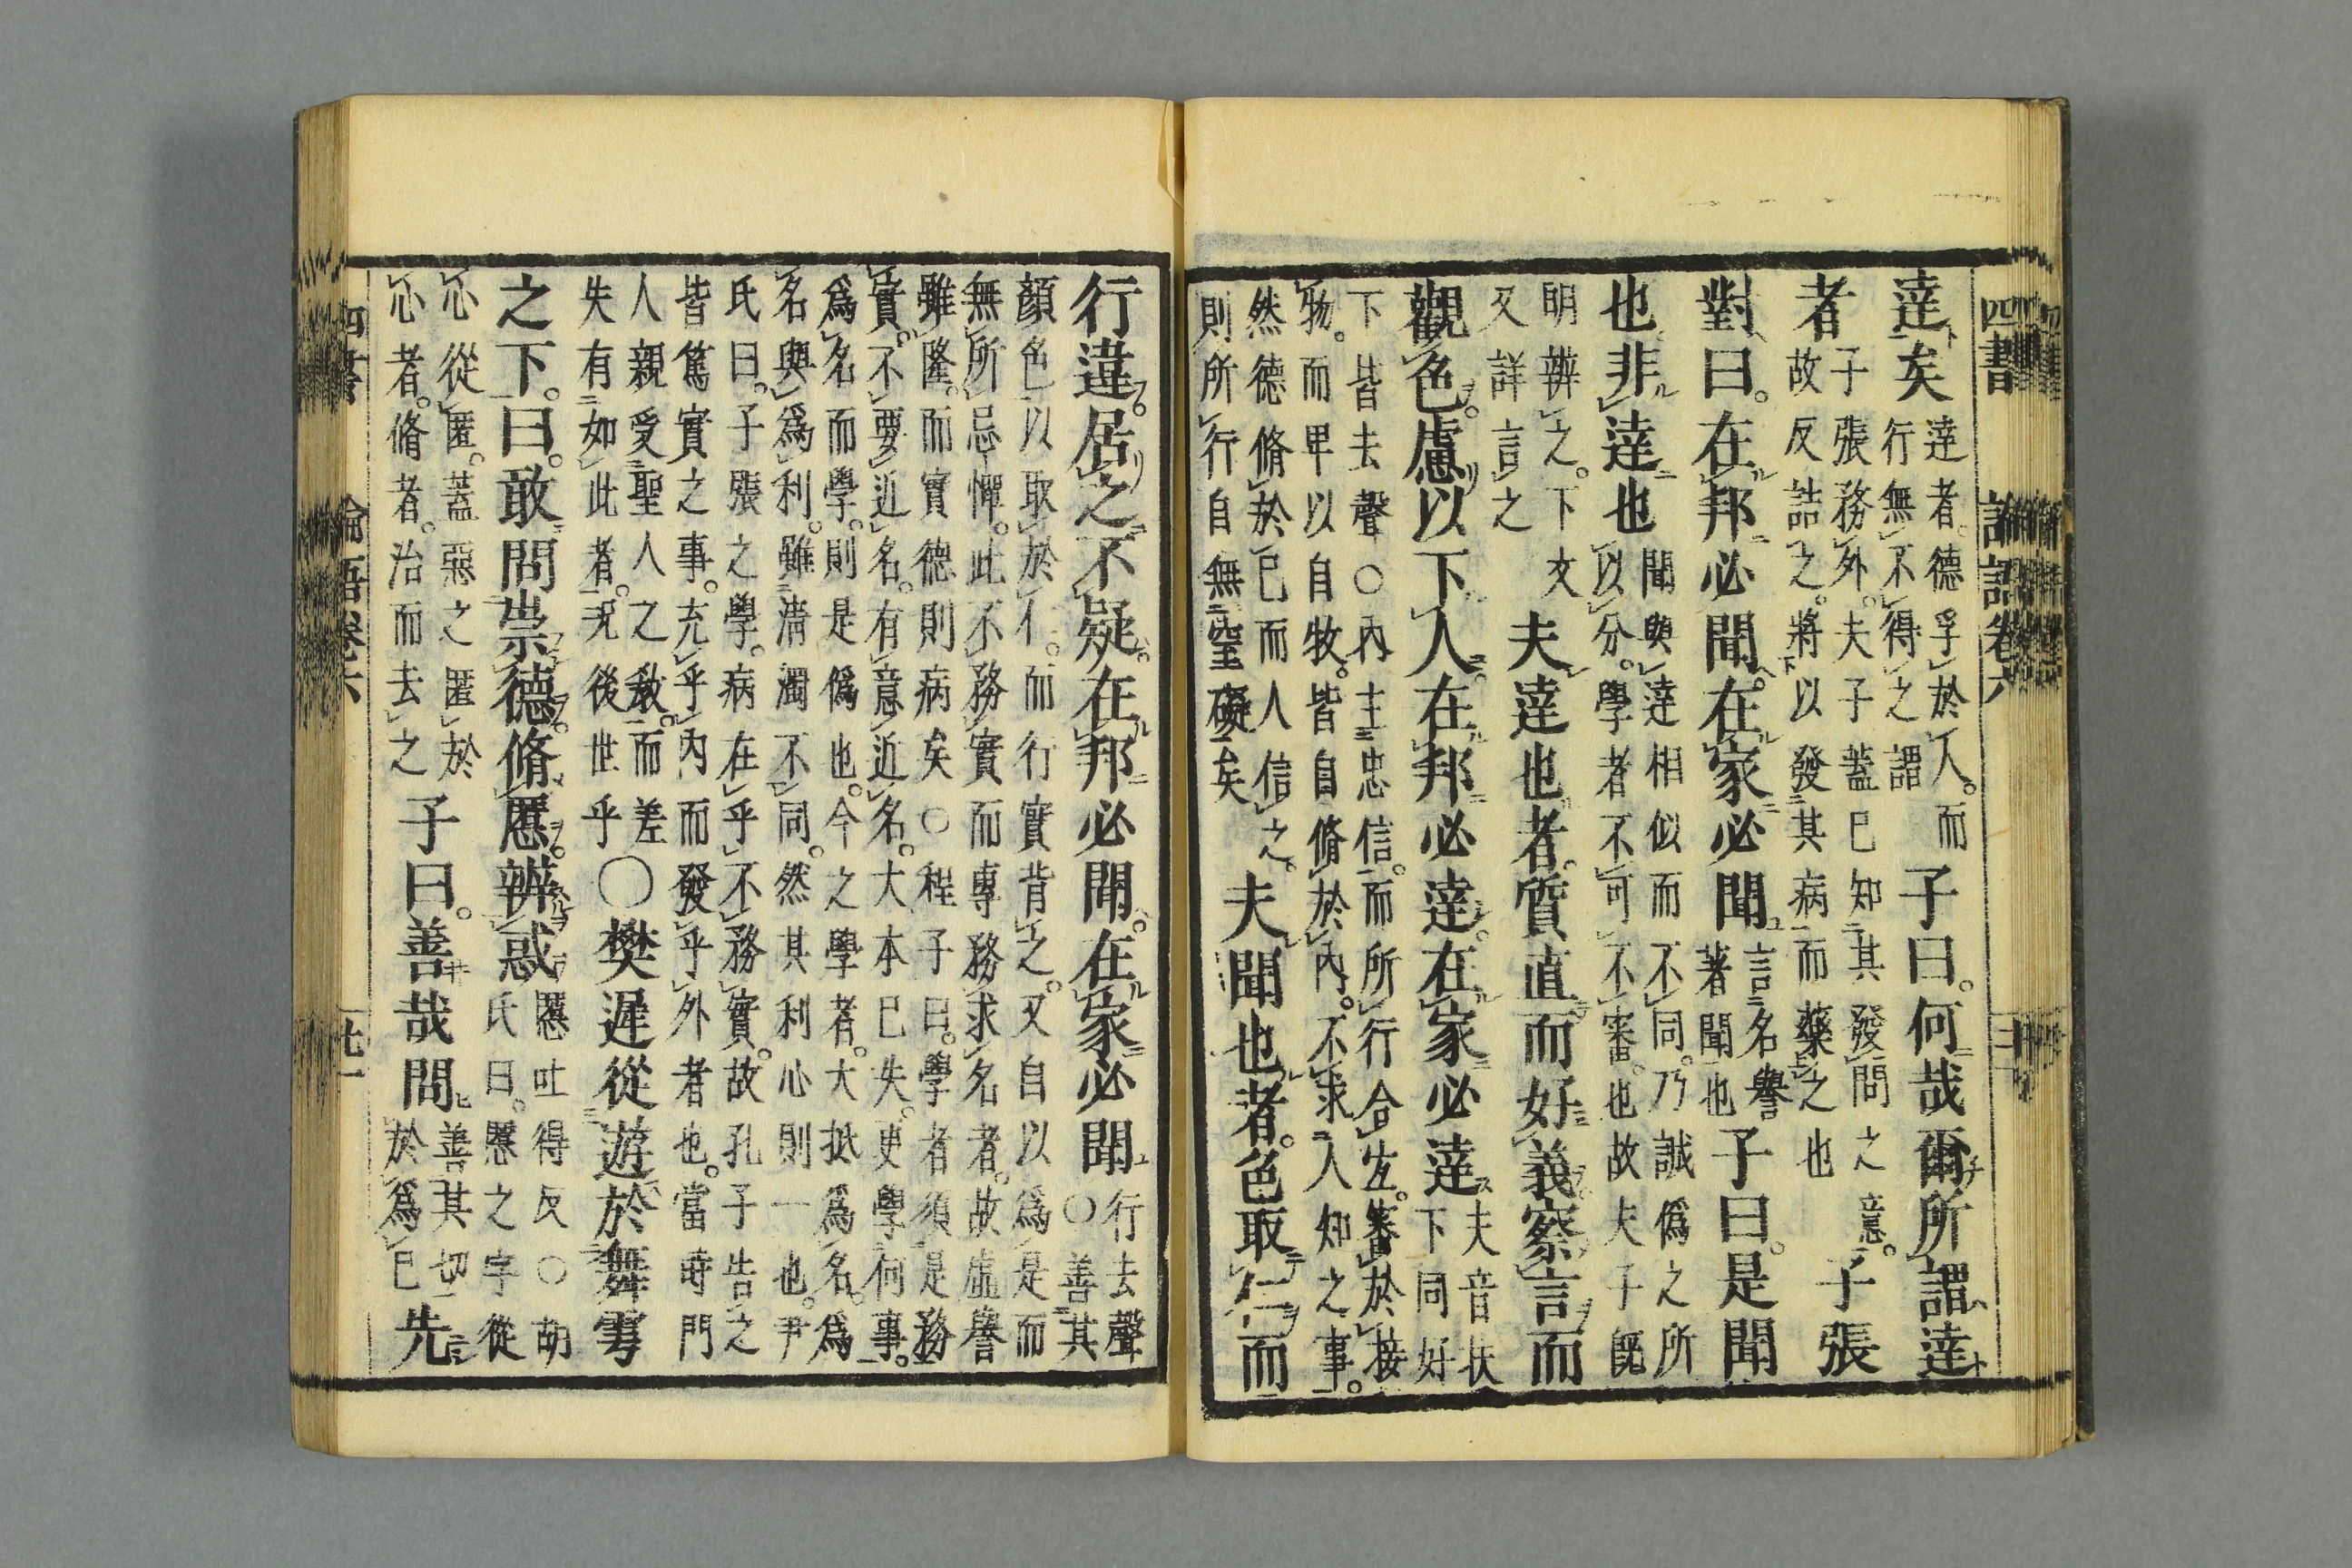 四書 論語卷六 二十
達矣 達者。德孚於人。而
行無不得之謂 子曰。何哉爾所謂達
者 子張務外。夫子蓋已知其發問之意。
故反詰之。將以發其病而藥之也 子張
對曰。在邦必聞。在家必聞 言名譽
著聞也 子曰。是聞
也非達也 聞與達相似而不同。乃誠偽之所
以分。學者不可不審也。故夫子既
明辨之。下文
又詳言之 夫達也者。質直而好義。察言而
觀色。慮以下人。在邦必達。在家必達 夫音扶
下同好
下皆去聲○內主忠信。而所行合宜。審於接
物。而卑以自牧。皆自脩於內。不求人知之事。
然德脩於己而人信之。
則所行自無窒礙矣 夫聞也者。色取仁而
行違。居之不疑。在邦必聞。在家必聞 行去聲
○善其
顏色以取於仁。而行實背之。又自以為是而
無所忌憚。此不務實而專務求名者。故虛譽
雖隆。而實德則病矣○程子曰。學者須是務
實。不要近名。有意近名。大本已失。更學何事。
為名而學。則是偽也。今之學者。大抵為名。為
名與為利。雖清濁不同。然其利心則一也。尹
氏曰。子張之學。病在乎不務實。故孔子告之
皆篤實之事。充乎內而發乎外者也。當時門
人親受聖人之敎。而差
失有如此者。況後世乎 ○樊遲從遊於舞雩
之下。曰。敢問崇德。脩慝。辨惑 慝吐得反○胡
氏曰。慝之字從
心從匿。蓋惡之匿於
心者。脩者。治而去之 子曰。善哉問 善其切
於為己 先
四書 論語卷六